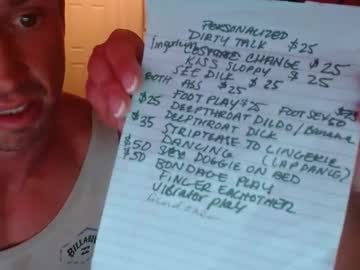 PERSONALIZED
DIRTY TALK $25
COSTUME CHANGE $25
KISS SLOPPY $25
SEE DICK $25
BOTH ASS $25
FOOT PLAY $25 FOOT SEX $50
$25 DEEPTHROAT DILDO/Banana
$35 DEEPTHROAT DICK
STRIPTEASE TO LINGERIE
$50 DANCING (LAPDANCE)
$50 SEX DOGGIE ON BED
BONDAGE PLAY
FINGER EACHOTHER
Vibrator play
BILLABONG